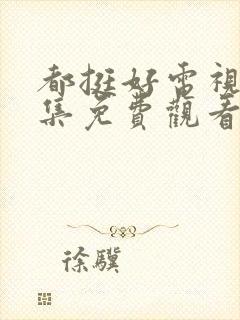 都挺好電視
集免費觀看
徐驥